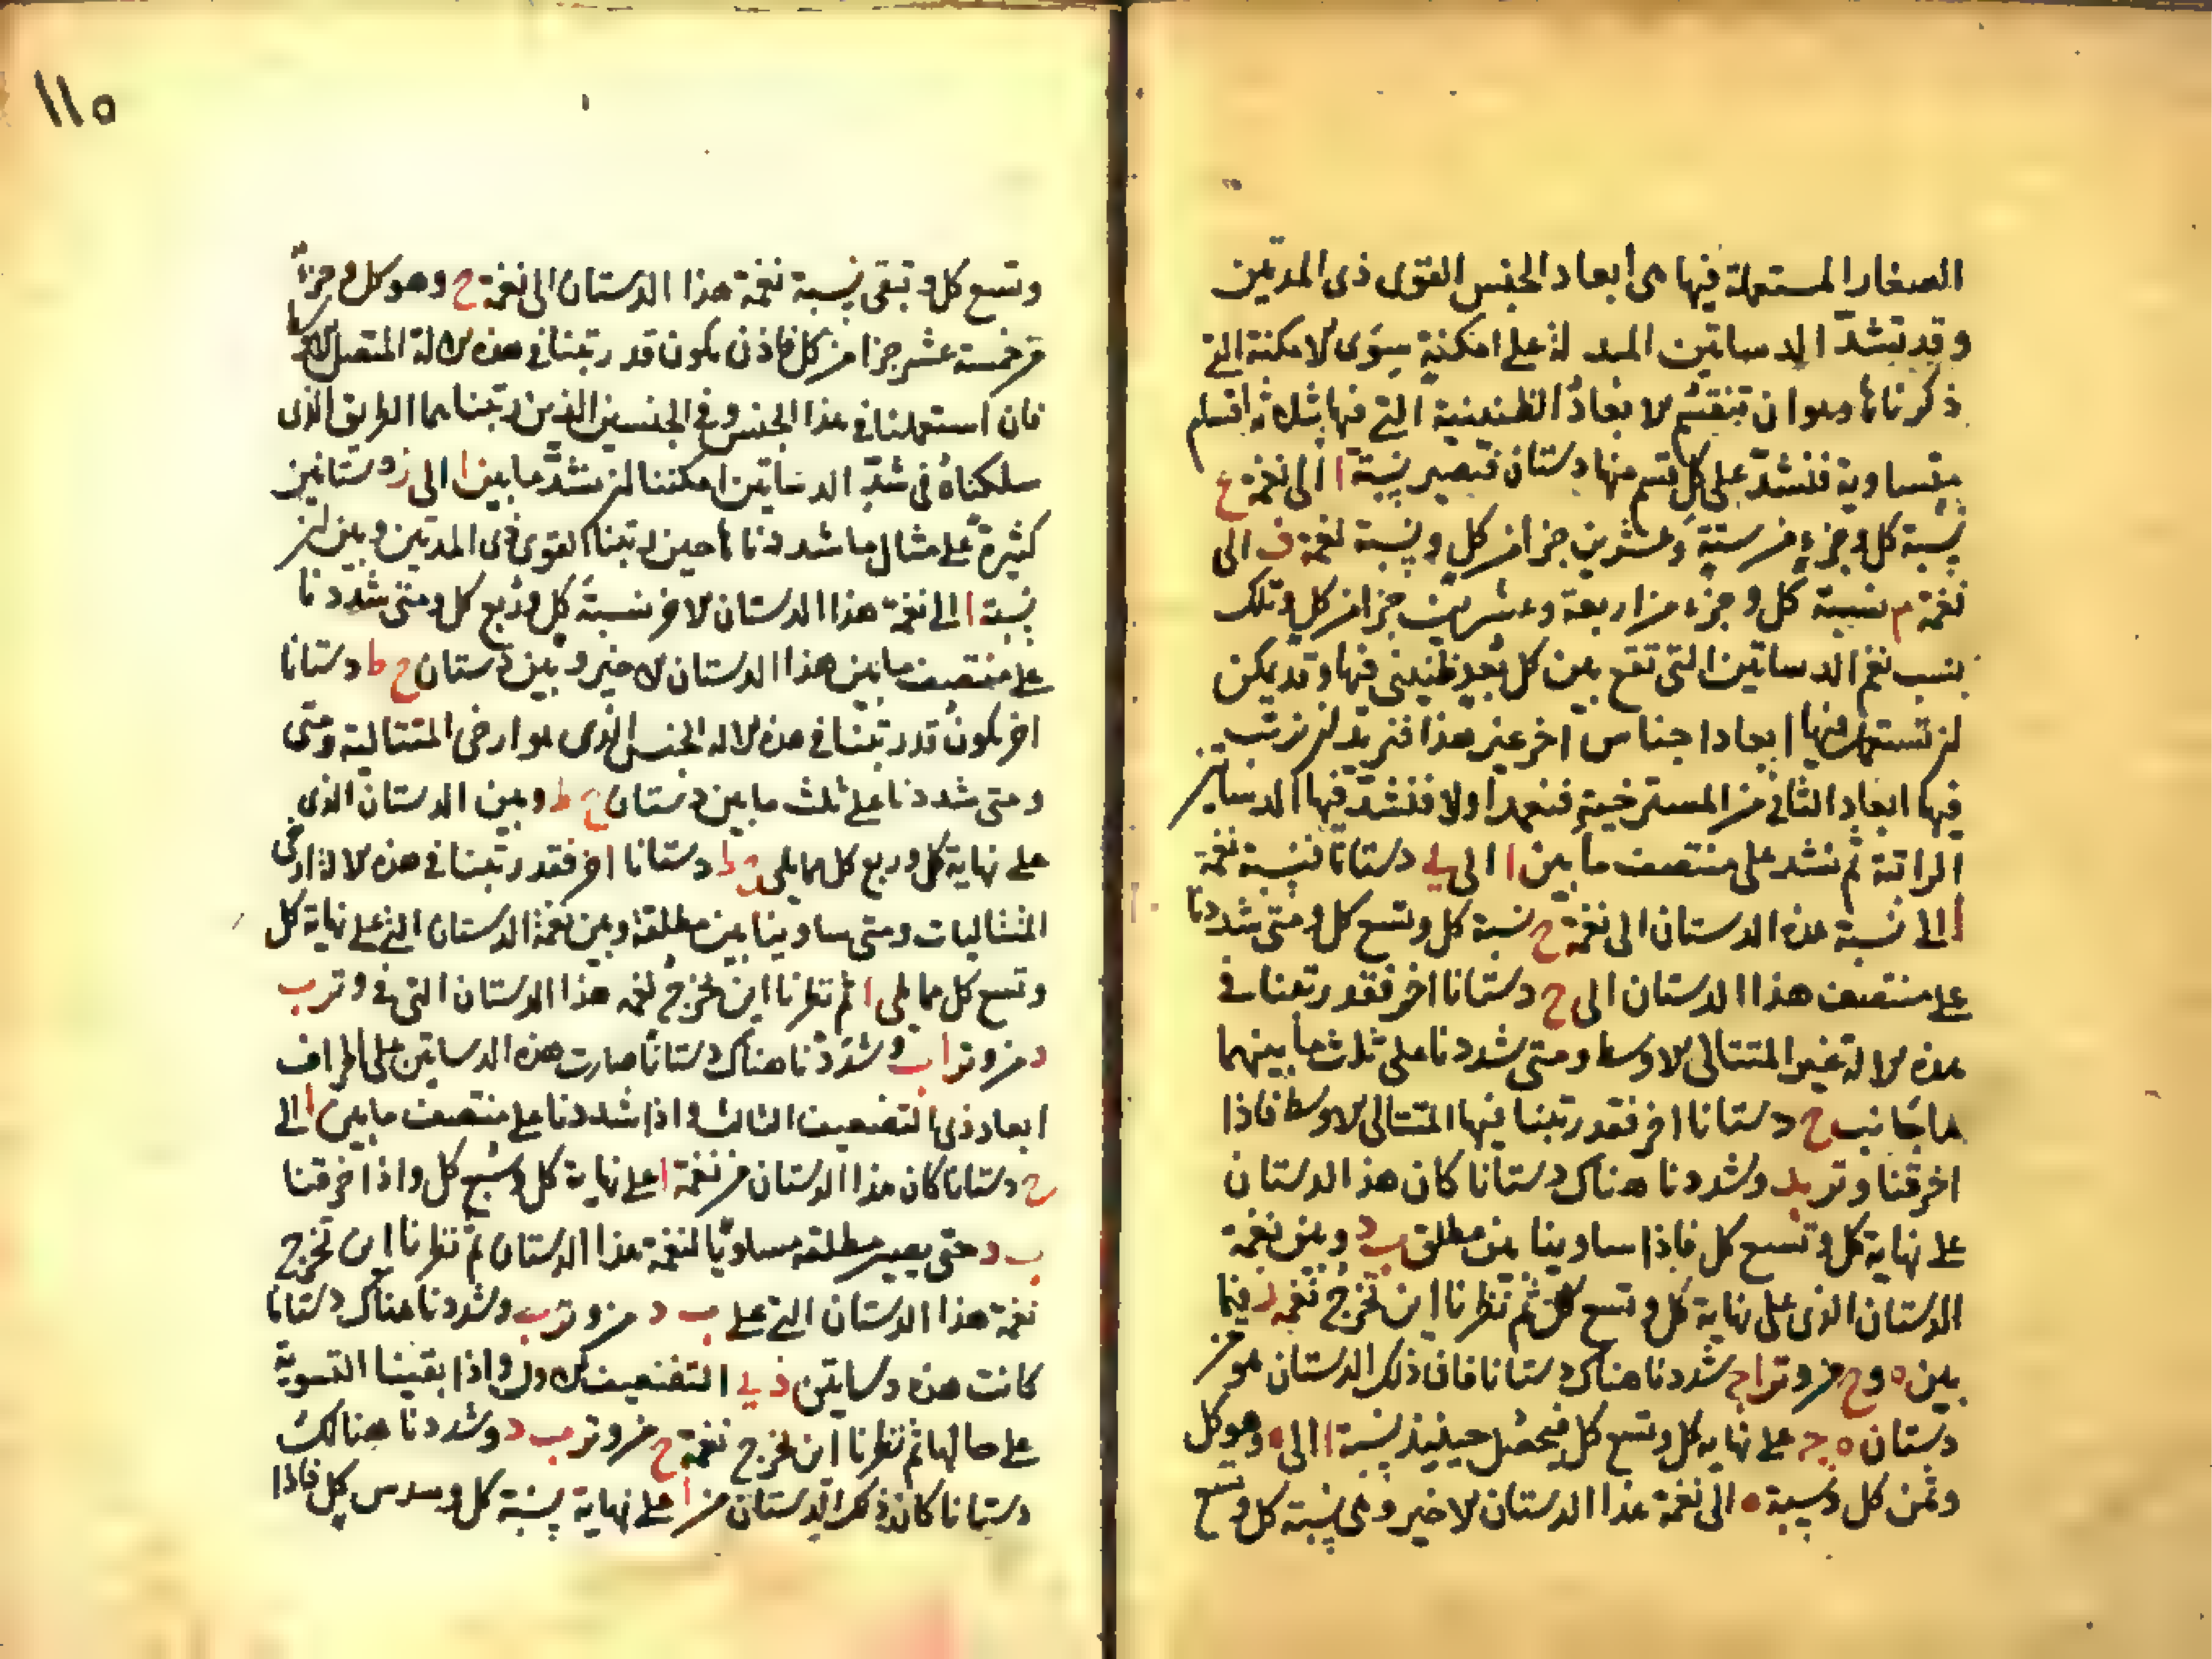 الصغار المستعملة فيها هى أبعاد الجنس القوى ذى المدتين
وقد تشد الدساتين المبدلة على امكنة سوى الامكنة التى
ذكرناها وهو ان تنقسم الابعاد الطنينية التى فيها بثلثة اقسام
متساوية فنشد على كل قسم منها دستان فتصير نسبة ا الى نغمة ع
نسبة كل وجزء من ستة وعشرين جزا من كل ونسبة نغمة ف الى
نغمة م نسبة كل وجزء من اربعة وعشرين جزا من كل وتلك
نسب نغم الدساتين التى تقع بين كل بعد طنينى فيها وقد يمكن
ان نستعمل فيها ابعاد اجناس اخر غير هذا فنريد ان نرتب
فيها ابعاد الثانى من المسترخية فنعمد اولا فنشد فيها الدساتين
الراتبة ثم نشد على منتصف ما بين ا الى ى دستانا فنسبة نغمة
ا الى نسبة هذه الدستان الى نغمة ح نسبة كل وتسع كل ومتى شددنا
على منتصف هذا الدستان الى ح دستانا اخر فقد رتبنا فى
هذه الالة غير المتتالى الاوسط ومتى شددنا على ثلث ما بينهما
مما جانب ح دستانا اخر فقد رتبنا فيها المتتالى الاوسط فاذا
اخرقنا وتر بد وشددنا هناك دستانا كان هذا الدستان
على نهاية كل وتسع كل فاذا ساوينا بين مطلق ب د وبين نغمة
الدستان الذى على نهاية كل وتسع كل ثم نظرنا اين تخرج نغمه د فيما
بين ه وح من وتر اج شددنا هناك دستانا فان ذلك الدستان هو من
دستان ه ح على نهايه كل وتسع كل فيحصل حينيذ نسبة ا الى ه وهو كل
وثمن كل ونسبة ه الى نغمة هذا الدستان الاخير وهى نسبة كل وتسع
١١٥
وتسع كل وتبقى نسبة نغمة هذا الدستان الى نغمة ح وهو كل وجزء
من خمسة عشر جزا من كل فاذن يكون قد رتبنا فى هذه الالة المتصل
فان استعملنا فى هذا الجنس وفى الجنسين الذين رتبناهما الطريق الذى
سلكناه فى شد الدساتين امكننا ان نشد ما بين ا الى ز دستانين
كثيرة على مثال ما شددناها حين رتبنا القوى ذى المدتين وبين ان
نسبة ا الى نغمة هذا الدستان الاخر نسبة كل وربع كل ومتى شددنا
على منتصف ما بين هذا الدستان الاخير وبين دستان ح ط دستانا
اخر يكون قد رتبنا فى هذه الاله الجنس الذى هو ارخى المتتالية ومتى
ومتى شددنا على ثلث ما بين دستان ح ط وبين الدستان الذى
على نهاية كل وربع كل مما يلى ح ط دستانا اخر فقد رتبنا فى هذه الالة ارخى
المتتاليات ومتى ساوينا بين مطلقة وبين نغمة الدستان التى على نهاية كل
وتسع كل مما يلى ا ثم نظرنا اين تخرج نغمه هذا الدستان التى فى وتر ب
د من وتر اب وشددنا هناك دستانا صارت هذه الدساتين على اطراف
ابعاد ذى التضعيف الثالث واذا شددنا على منتصف ما بين ا الى
ح دستانا كان هذا الدستان من نغمة ا على نهاية كل وسبع كل واذا اخرقنا
ب د حتى يصير مطلقه مساويا لنغمة هذا الدستان ثم نظرنا اين تخرج
نغمة هذا الدستان التى على ب د من وتر ب وشددنا هناك دستانا
كانت هذه دساتين ذى التضعيف الاول واذا بقينا التسوية
على حالها ثم نظرنا اين تخرج نغمة ح من وتر ب د وشددنا هنالك
دستانا كان ذلك الدستان من ا على نهاية نسبة كل وسدس كل فاذا